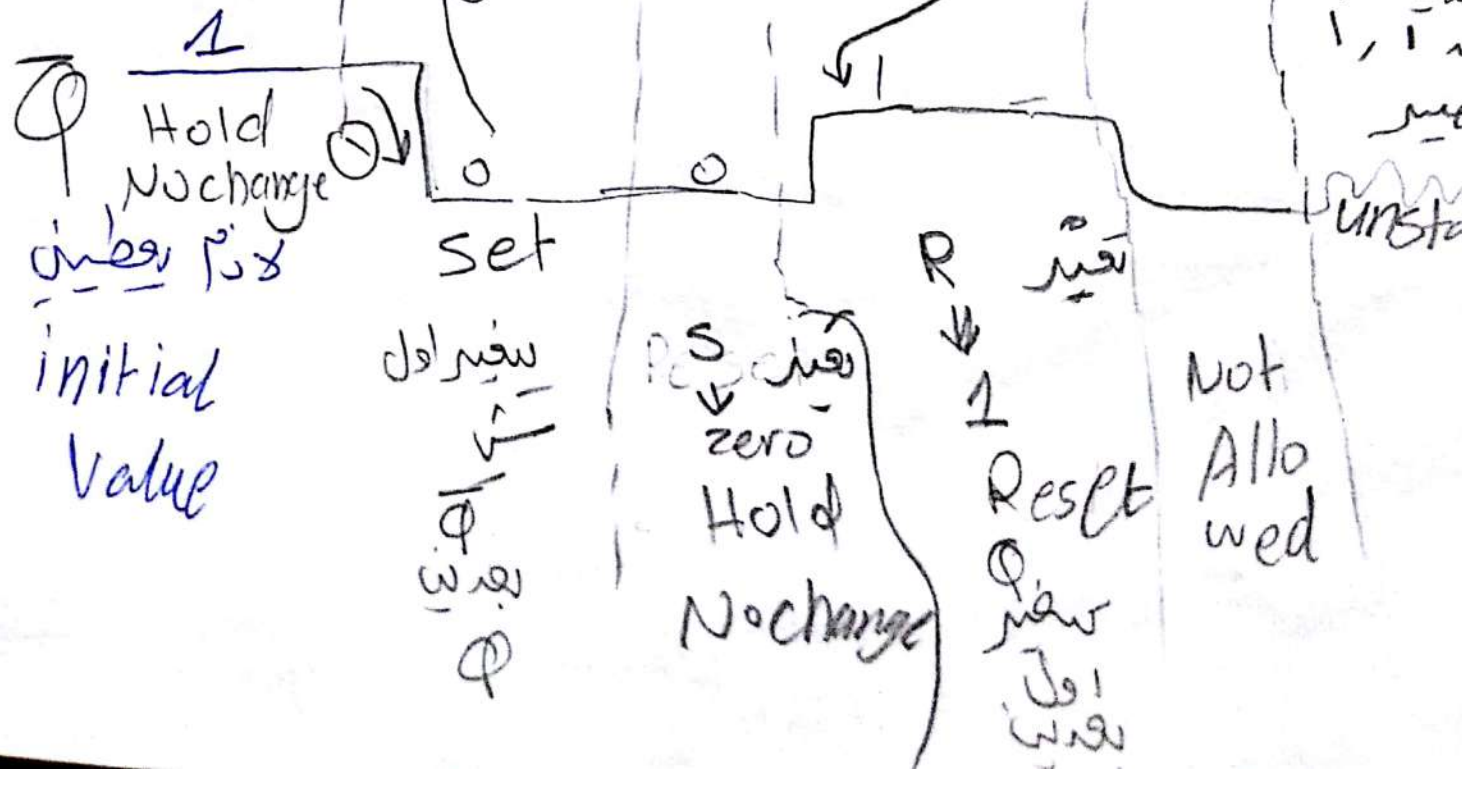 1
Q̅
Hold
No change
0
0
1
1, 1
لازم يعطيني
initial
Value
set
يتغير اول
شي
Q̅
بعدين
Q
S تغير
↓
zero
Hold
No change
R تغير
↓
1
Reset
Q
تتغير
اول
بعدين
Not
Allo
wed